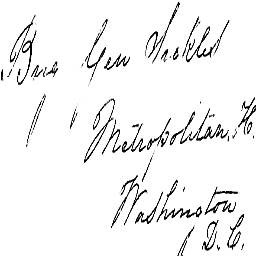 Brig Gen Sickles
" " Metropolitan, H.
Washington
D.C.